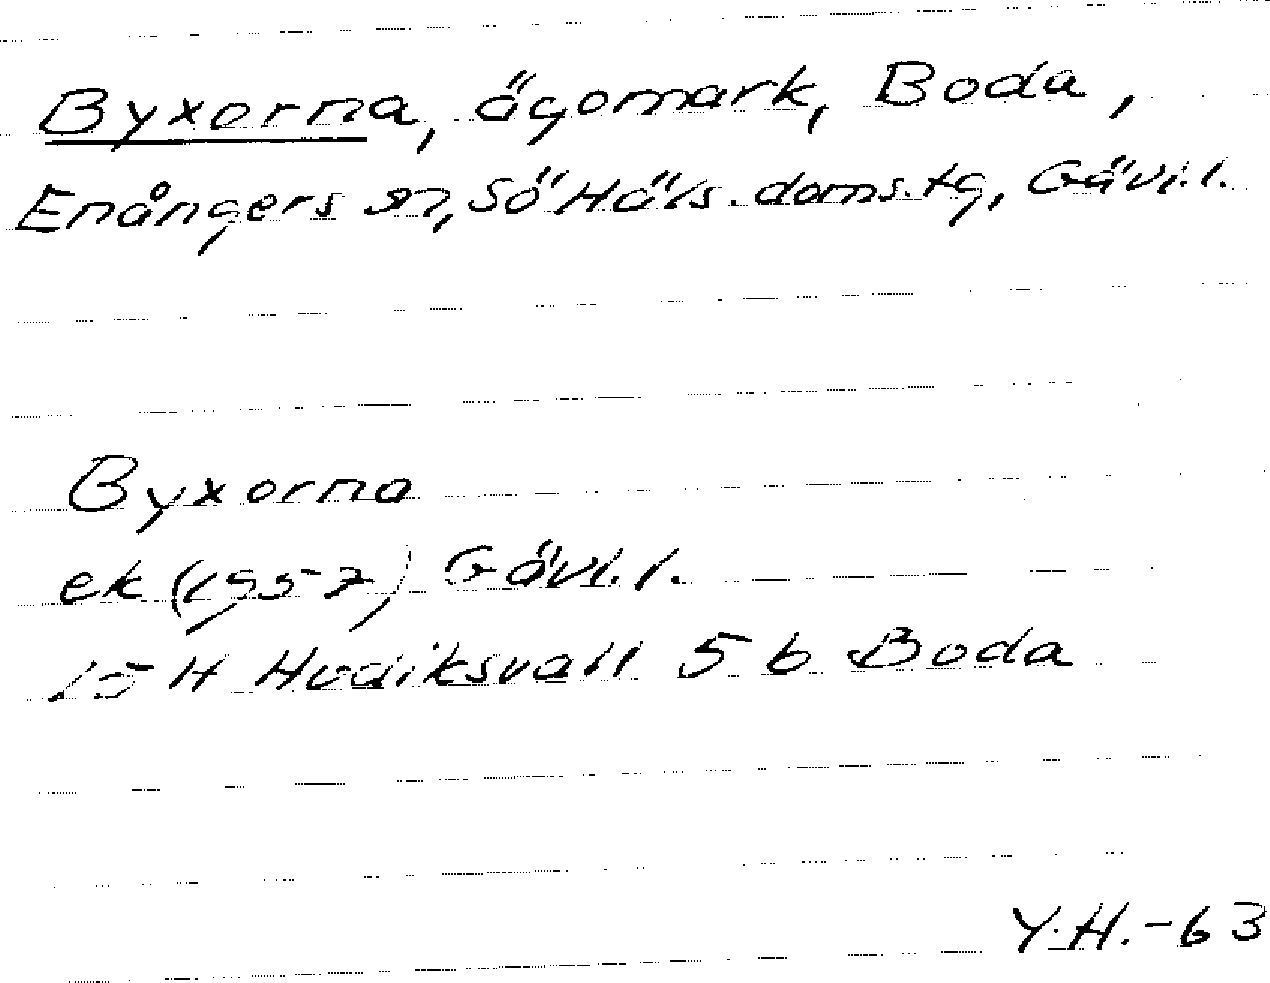 Byxorna, ägomark, Boda,
Enångers sn, Sö Häls. doms.tg, Gävl.l.
Byxorna
ek (1957) Gävl.l.
15 H Hudiksvall 5 b Boda
Y.H.-63